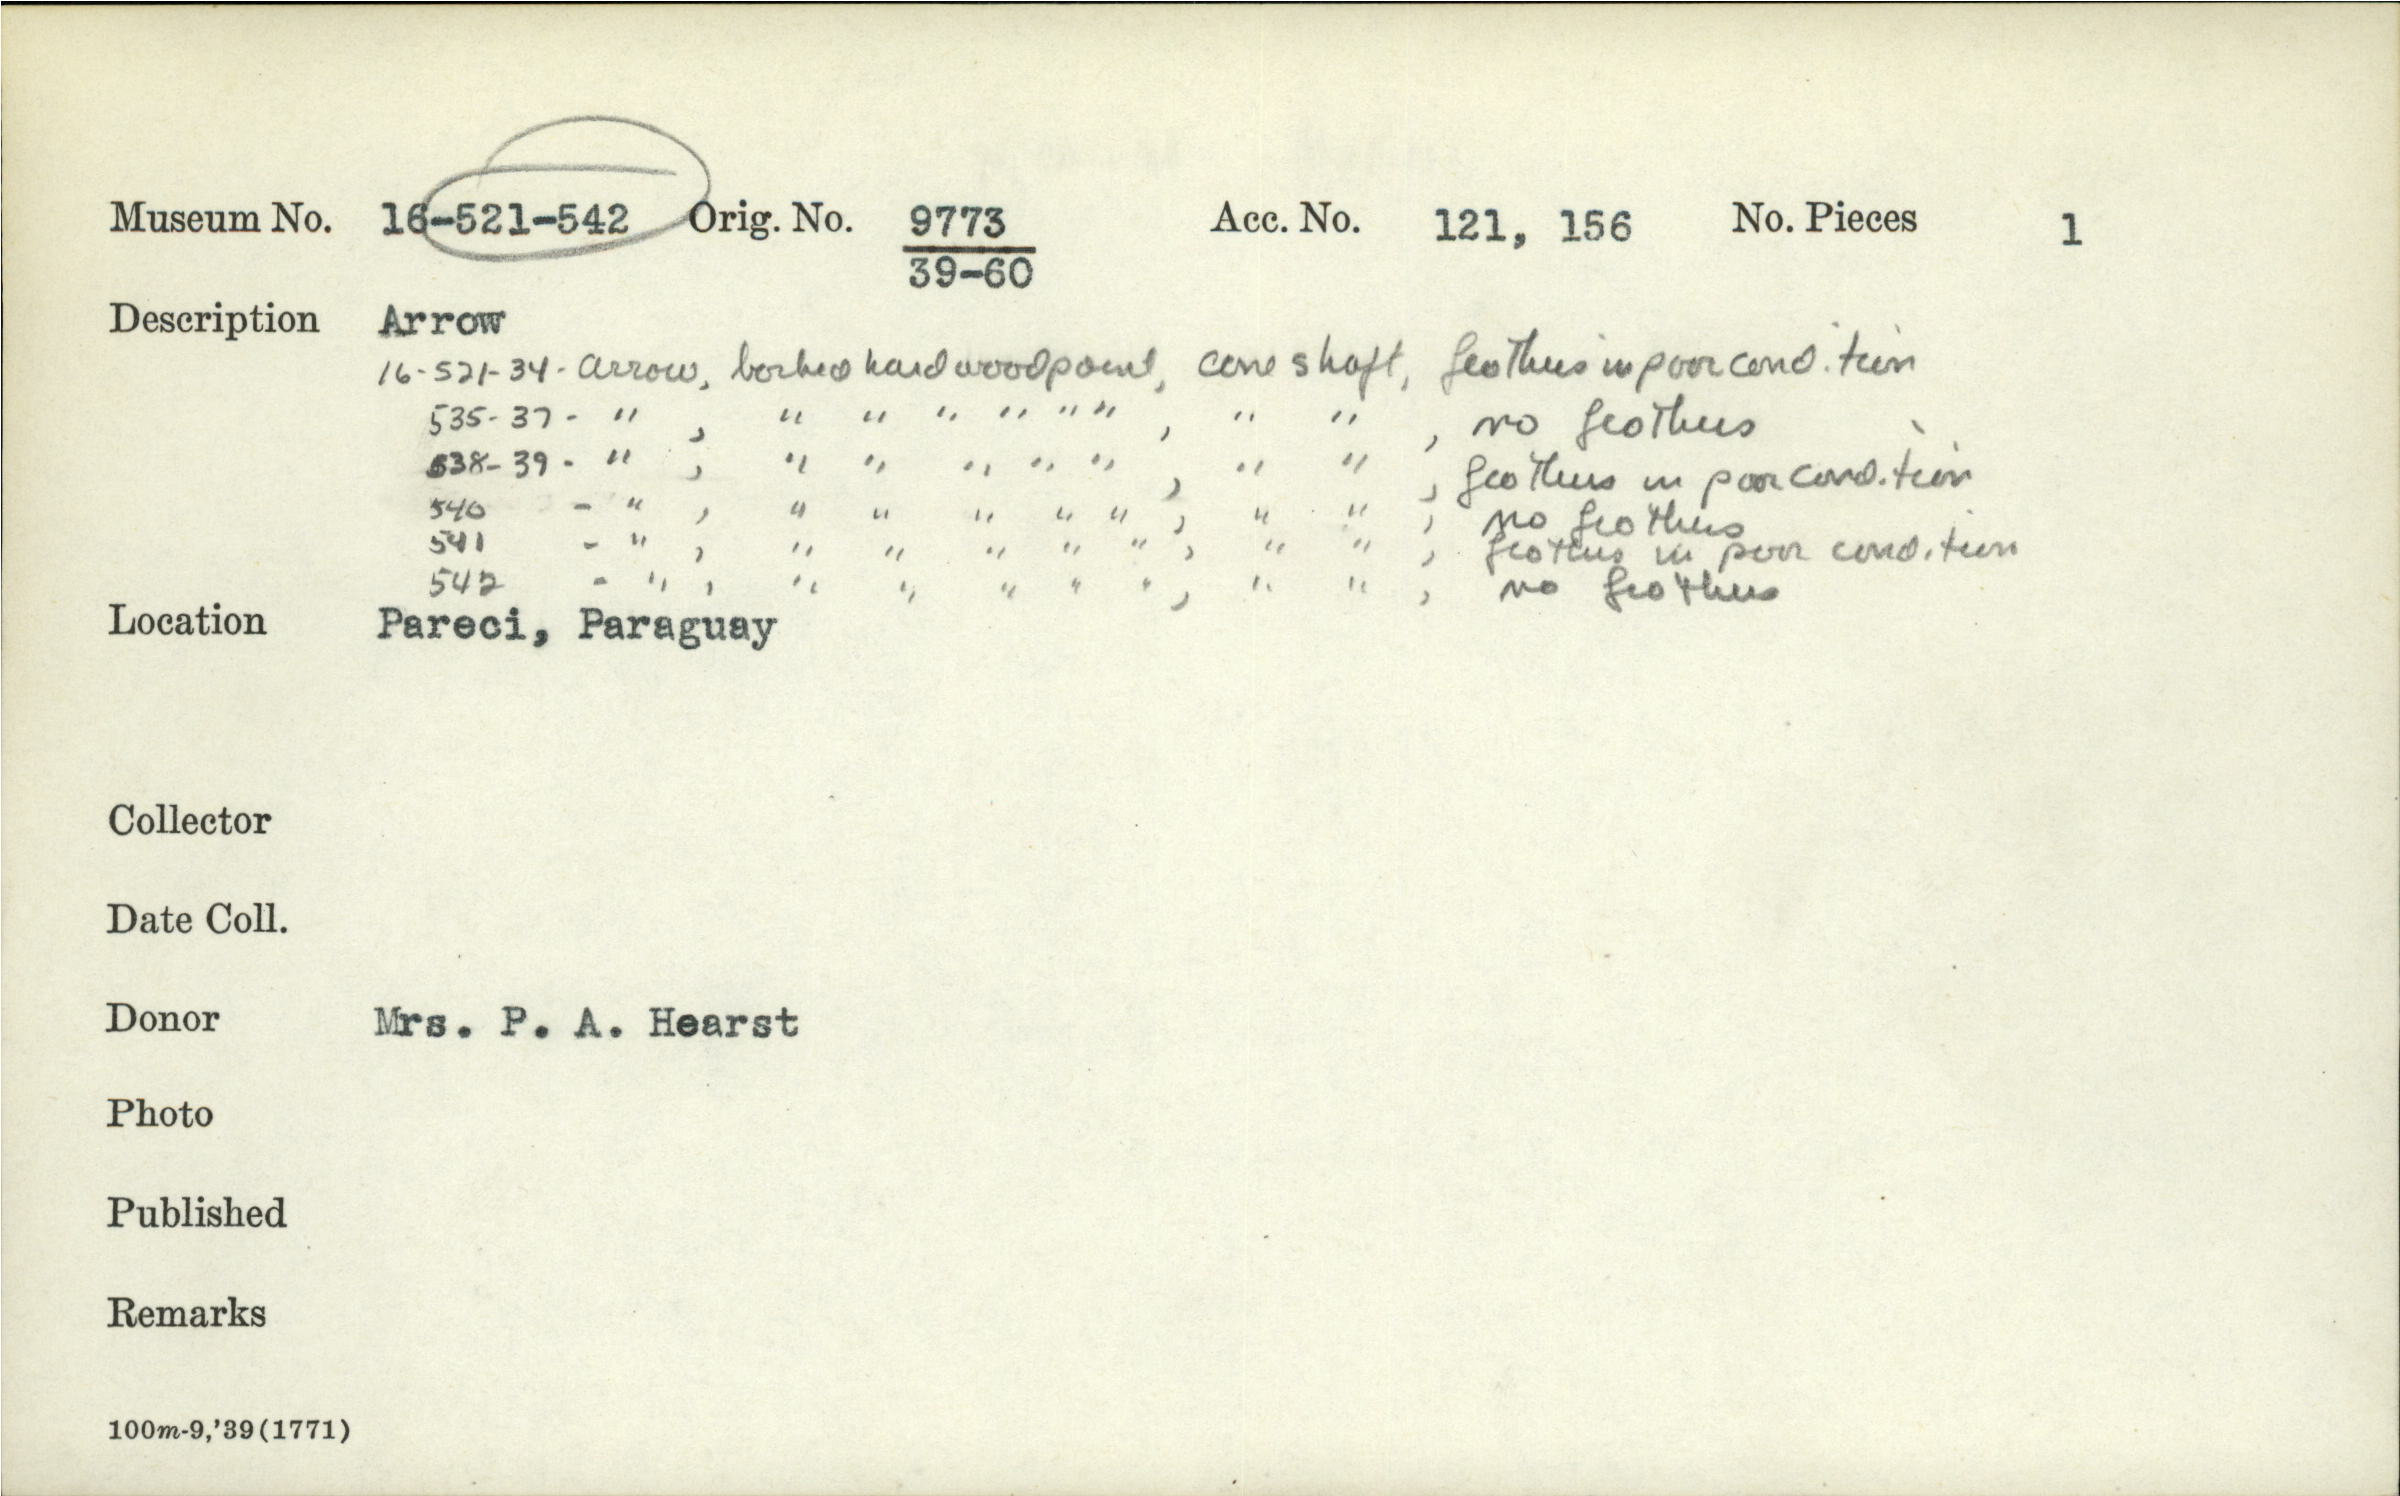 Museum No. 16-521-542 Orig. No. 9773 Acc. No. 121, 156 No. Pieces 1
39-60
Description Arrow
16-521-34- arrow, barbed hardwood point, cane shaft, feathers in poor condition
535-37- " , " " " " " " , " " , no feathers
538-39- " , " " " " " , " " , feathers in poor condition
540 - " , " " " " " , " " , no feathers
541 - " , " " " " " , " " , feathers in poor condition
542 - " , " " " " " , " " , no feathers
Location Pareci, Paraguay
Collector
Date Coll.
Donor Mrs. P. A. Hearst
Photo
Published
Remarks
100m-9,'39(1771)